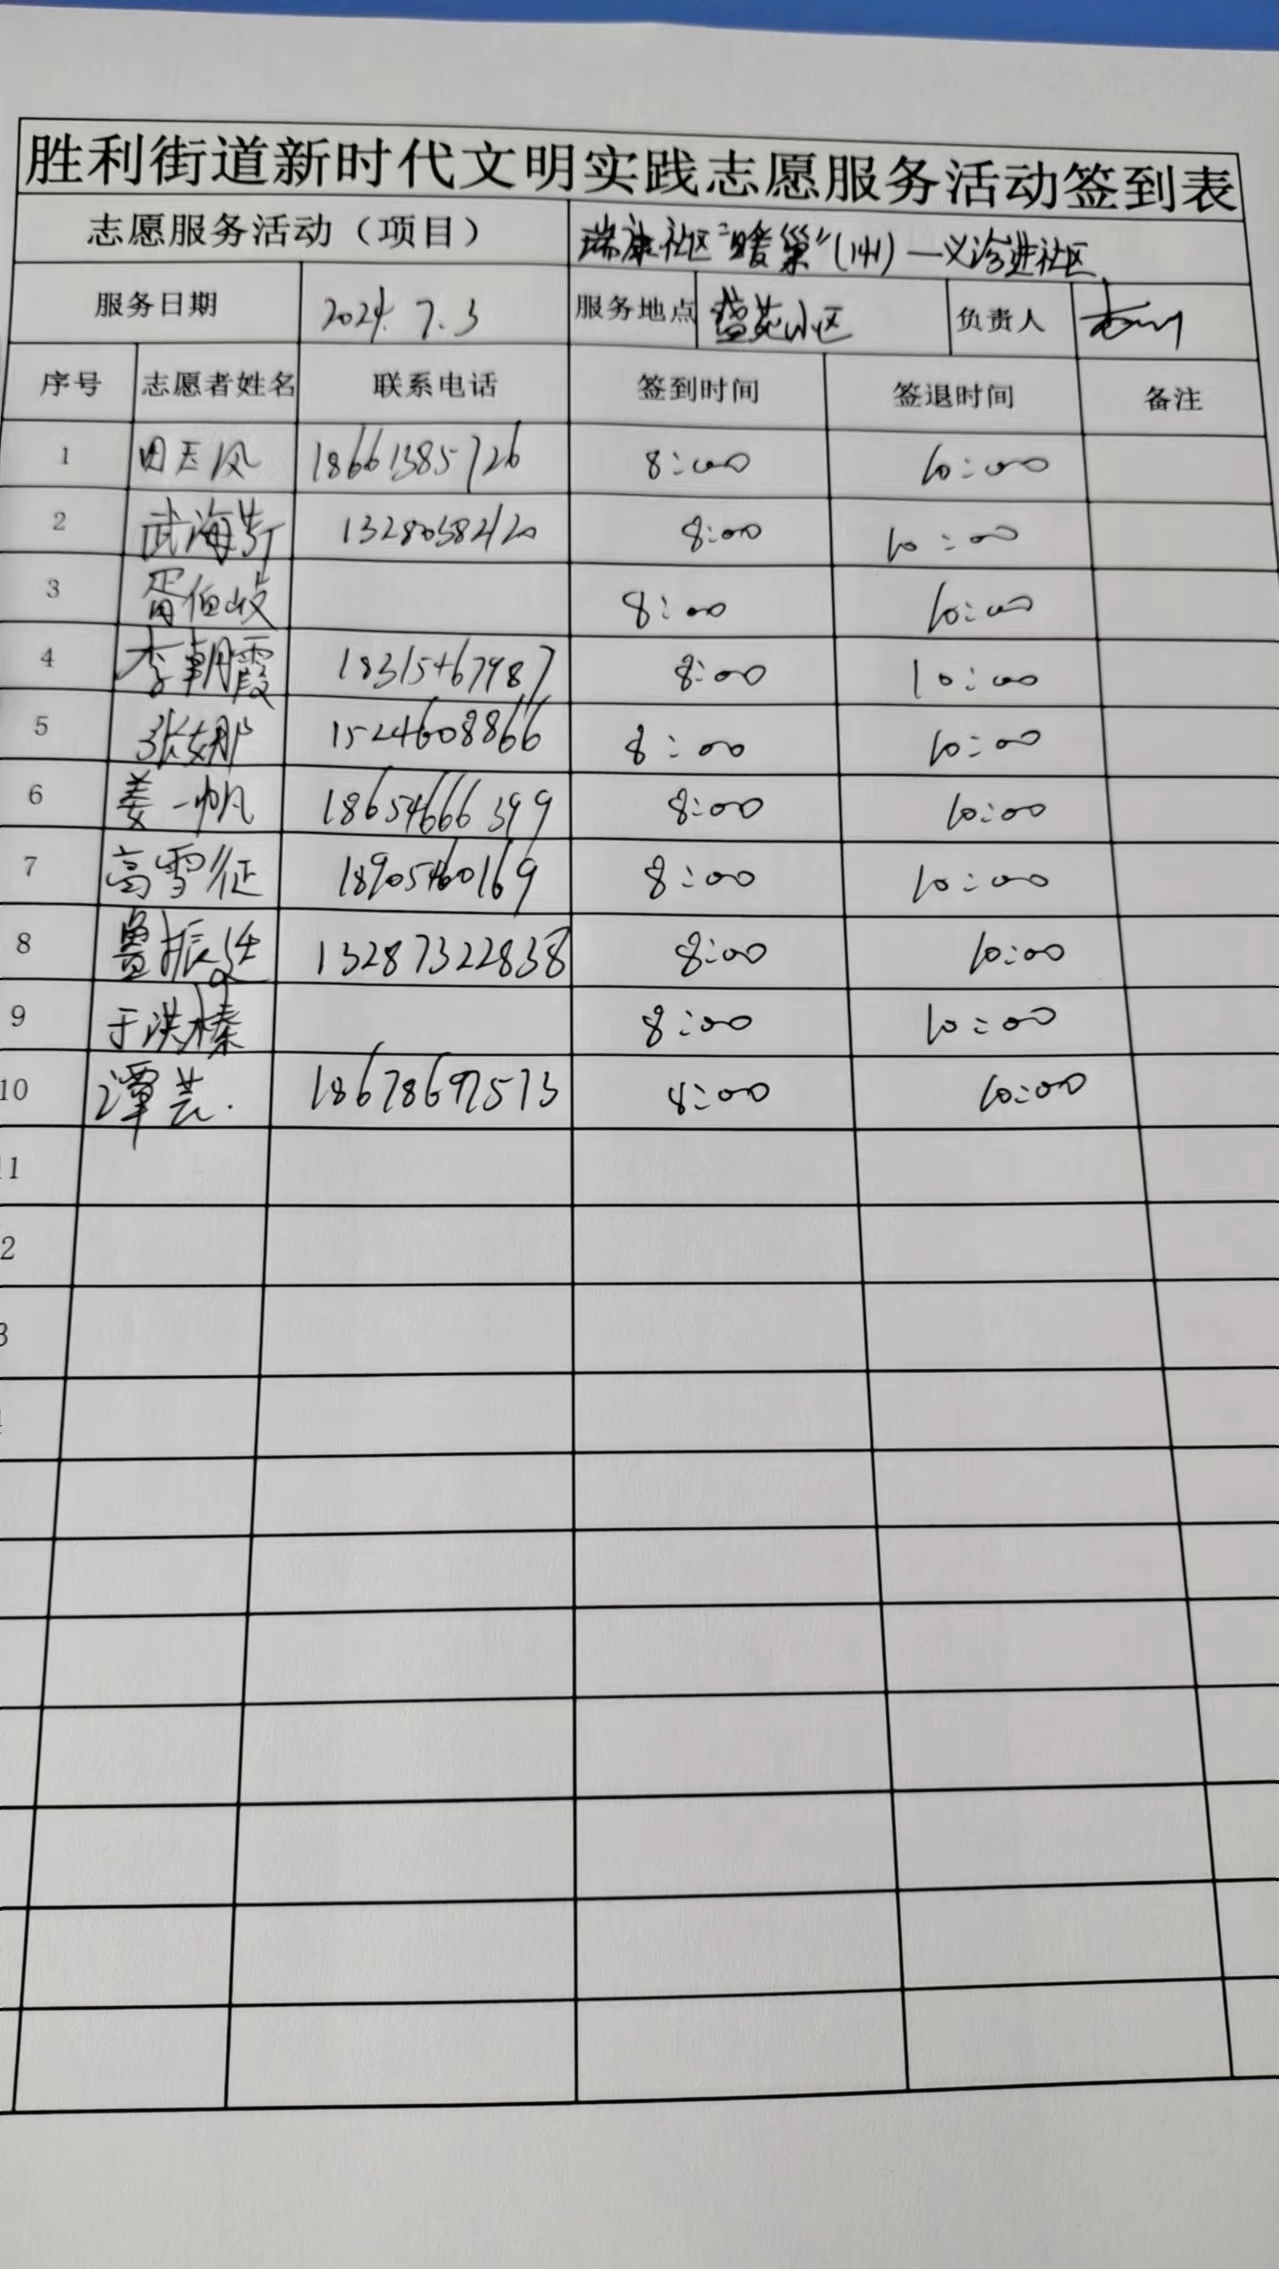 胜利街道新时代文明实践志愿服务活动签到表
志愿服务活动（项目） 瑞康社区"暖巢"(141)一义诊进社区
服务日期 2024.7.3 服务地点 盛苑小区 负责人
序号 志愿者姓名 联系电话 签到时间 签退时间 备注
1 18661385726 8:00 10:00
2 武海 13280382120 8:00 10:00
3 胥伯岐 8:00 10:00
4 李朝霞 18315467987 8:00 10:00
5 张娜 15244608866 8:00 10:00
6 姜一帆 18654666399 8:00 10:00
7 高雪征 18905460169 8:00 10:00
8 鲁振廷 13287322838 8:00 10:00
9 于洪榛 8:00 10:00
10 谭芸. 18678697573 8:00 10:00
1
2
3